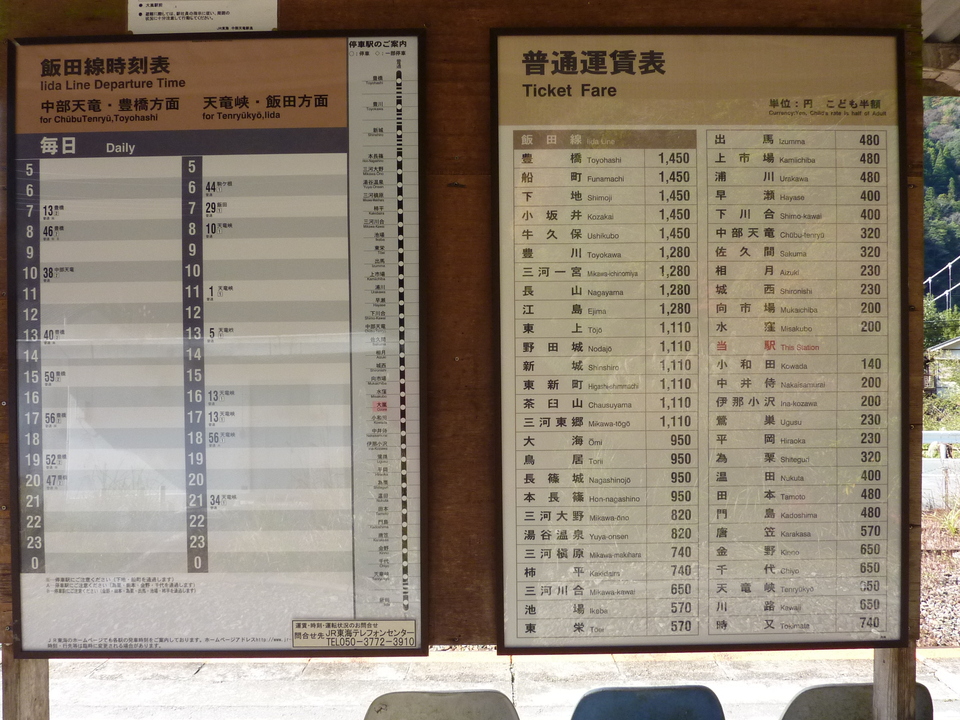 飯田線時刻表
Iida Line Departure Time
中部天竜・豊橋方面
for ChūbuTenryū,Toyohashi
天竜峡・飯田方面
for Tenryūkyō,Iida
毎日 Daily
5
6
7 13 豊橋
8 46 豊橋
9
10 38 中部天竜
11
12
13 40 豊橋
14
15 59 豊橋
16
17 56 豊橋
18
19 52 豊橋
20 47 豊橋
21
22
23
0
5
6 44 駒ケ根
7 29 飯田
8 10 天竜峡
9
10
11 1 天竜峡
12
13 5 天竜峡
14
15
16 13 天竜峡
17 13 天竜峡
18 56 天竜峡
19
20
21 34 天竜峡
22
23
0
停車駅のご案内
○:停車 ○:一部停車
豊橋
豊川
新城
本長篠
三河大野
湯谷温泉
三河槇原
柿平
三河川合
池場
東栄
出馬
上市場
浦川
早瀬
下川合
中部天竜
佐久間
相月
城西
向市場
水窪
大嵐
小和田
中井侍
伊那小沢
鶯巣
平岡
為栗
温田
田本
門島
唐笠
金野
千代
天竜峡
運賃・時刻・運転状況のお問合せ
問合せ先 JR東海テレフォンセンター
TEL050-3772-3910
普通運賃表
Ticket Fare
単位：円 こども半額
Currency:Yen, Child's rate is half of Adult
飯田線 Iida Line
豊橋 Toyohashi 1,450
船町 Funamachi 1,450
下地 Shimoji 1,450
小坂井 Kozakai 1,450
牛久保 Ushikubo 1,450
豊川 Toyokawa 1,280
三河一宮 Mikawa-ichinomiya 1,280
長山 Nagayama 1,280
江島 Ejima 1,280
東上 Tōjō 1,110
野田城 Nodajō 1,110
新城 Shinshiro 1,110
東新町 Higashi-shimmachi 1,110
茶臼山 Chausuyama 1,110
三河東郷 Mikawa-tōgō 1,110
大海 Ōmi 950
鳥居 Torii 950
長篠城 Nagashinojō 950
本長篠 Hon-nagashino 950
三河大野 Mikawa-ōno 820
湯谷温泉 Yuya-onsen 820
三河槇原 Mikawa-makihara 740
柿平 Kakidaira 740
三河川合 Mikawa-kawai 650
池場 Ikeba 570
東栄 Tōei 570
出馬 Izumma 480
上市場 Kamiichiba 480
浦川 Urakawa 480
早瀬 Hayase 400
下川合 Shimo-kawai 400
中部天竜 Chūbu-tenryū 320
佐久間 Sakuma 320
相月 Aizuki 230
城西 Shironishi 230
向市場 Mukaichiba 200
水窪 Misakubo 200
当駅 This Station
小和田 Kowada 140
中井侍 Nakaisamurai 200
伊那小沢 Ina-kozawa 200
鶯巣 Ugusu 230
平岡 Hiraoka 230
為栗 Shiteguri 320
温田 Nukuta 400
田本 Tamoto 480
門島 Kadoshima 480
唐笠 Karakasa 570
金野 Kinno 650
千代 Chiyo 650
天竜峡 Tenryūkyō 650
川路 Kawaji 650
時又 Tokimata 740